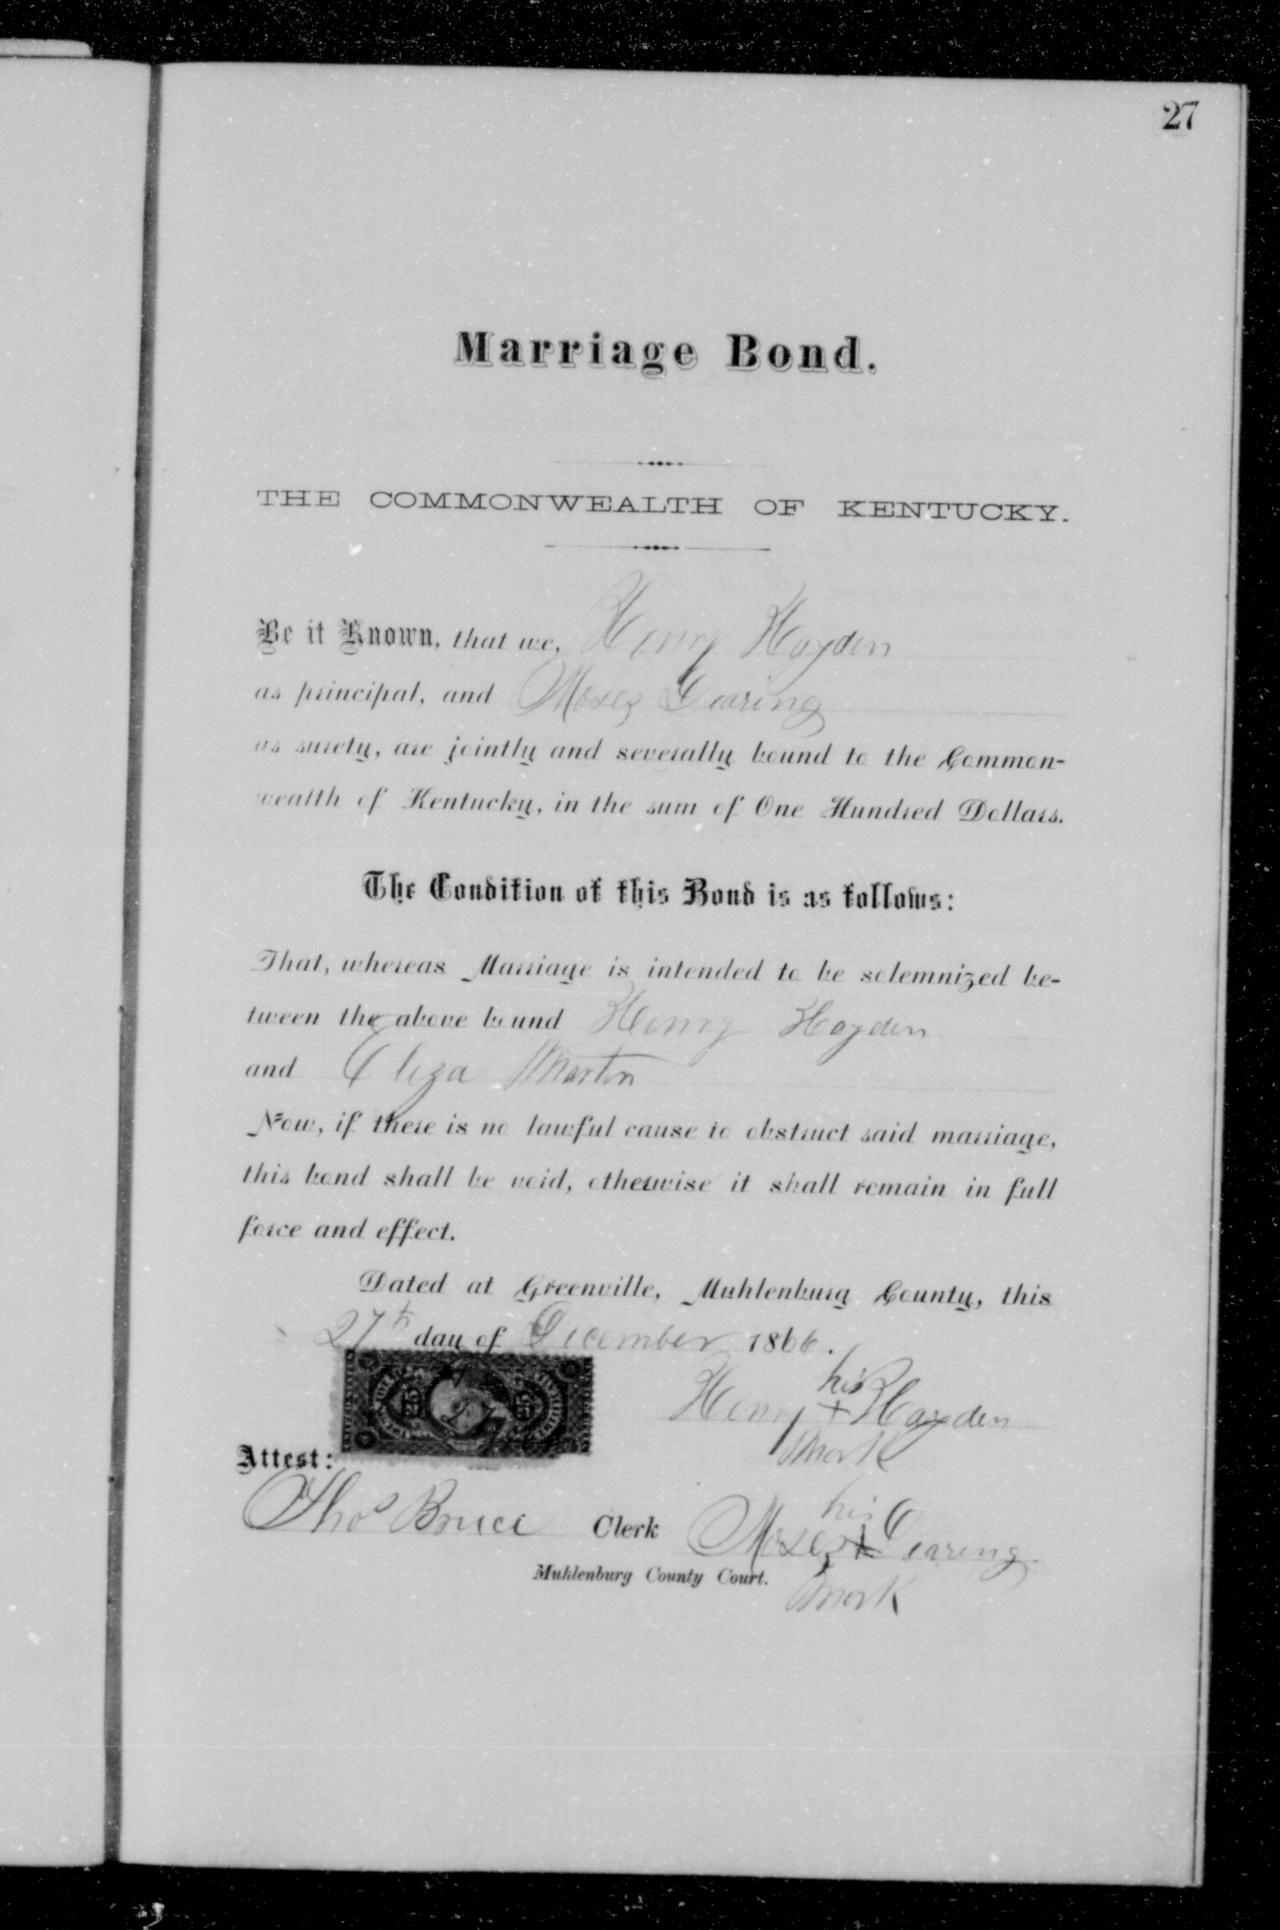 27
Marriage Bond.
THE COMMONWEALTH OF KENTUCKY.
Be it Known, that we, Henry Hayden
as principal, and Moses Dearing
as surety, are jointly and severally bound to the Common-
wealth of Kentucky, in the sum of One Hundred Dollars.
The Condition of this Bond is as follows:
That, whereas Marriage is intended to be solemnized be-
tween the above bound Henry Hayden
and Eliza Martin
Now, if there is no lawful cause to obstruct said marriage,
this bond shall be void, otherwise it shall remain in full
force and effect.
Dated at Greenville, Muhlenburg County, this
27th day of December 1866.
his
Henry + Hayden
mark
Attest:
Thos Bruce Clerk
his
Moses + Dearing
mark
Muhlenburg County Court.